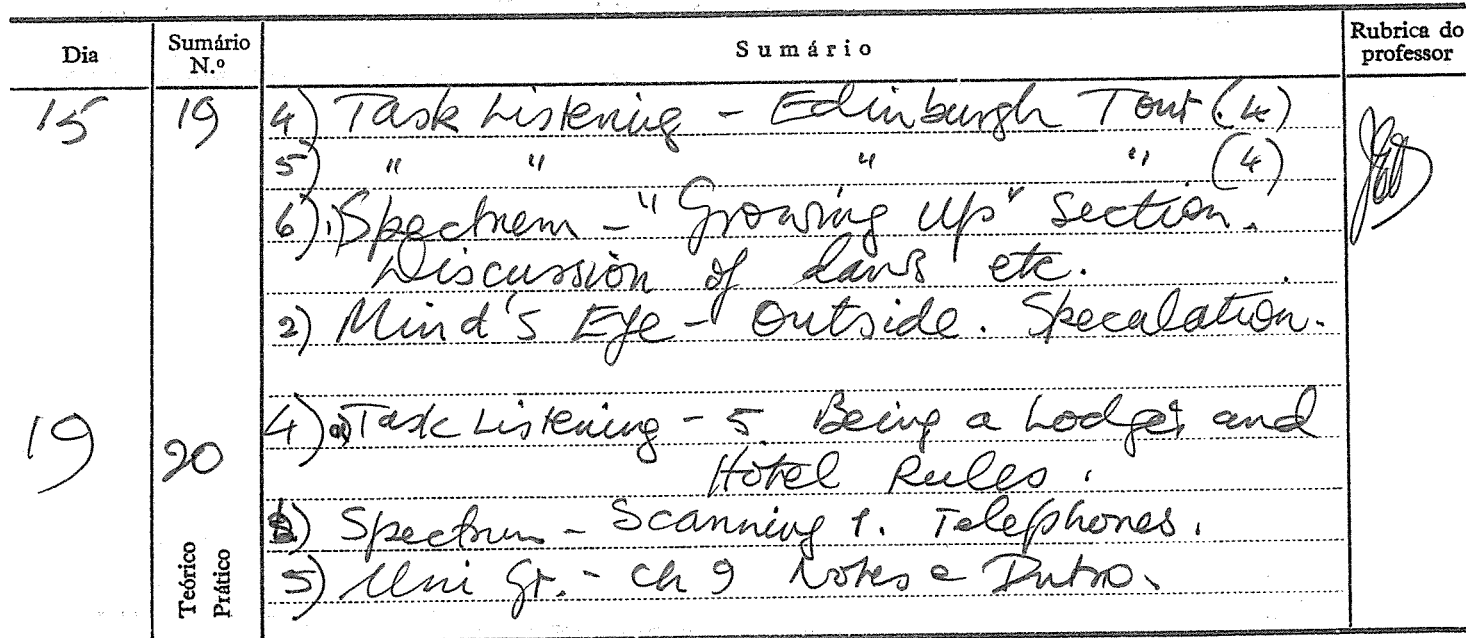 Dia Sumário N.º Sumário Rubrica do professor
15 19 4) Task Listening - Edinburgh Tour (4)
5) " " " " (4)
6) 1) Spectrum - "Growing Up" Section.
Discussion of laws etc.
2) Mind's Eye - Outside. Speculation.
19 20 4) a) Task Listening - 5. Being a Lodger and
Hotel Rules.
b) Spectrum - Scanning 1. Telephones.
5) Uni Gr. - Ch 9 Notes e Intro.
Teórico
Prático